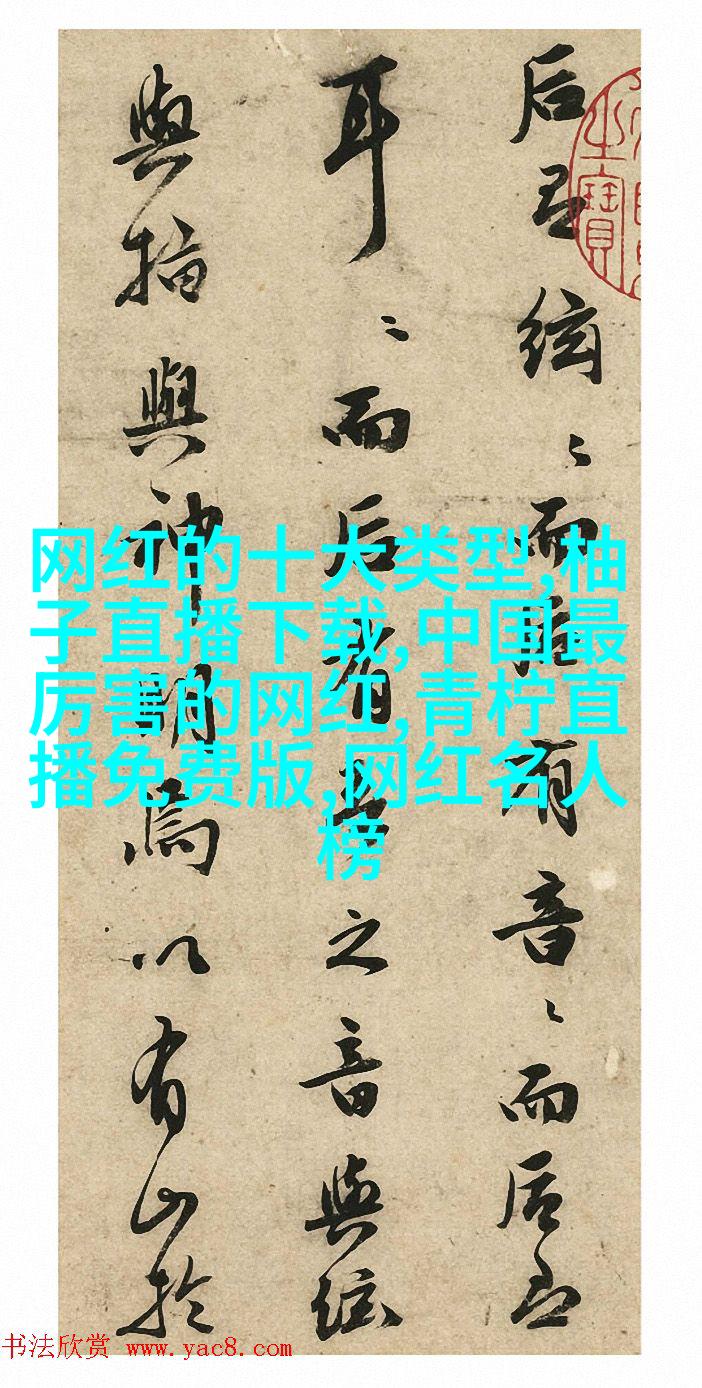 后絃〻而后有音〻而后
耳〻而后之音與絃
與指與神明焉以有山於
之寶
网红的十大类型,柚
子直播下载,中国最
厉害的网红,青柠直
播免费版,网红名人
榜
书法欣赏 www.yac8.com